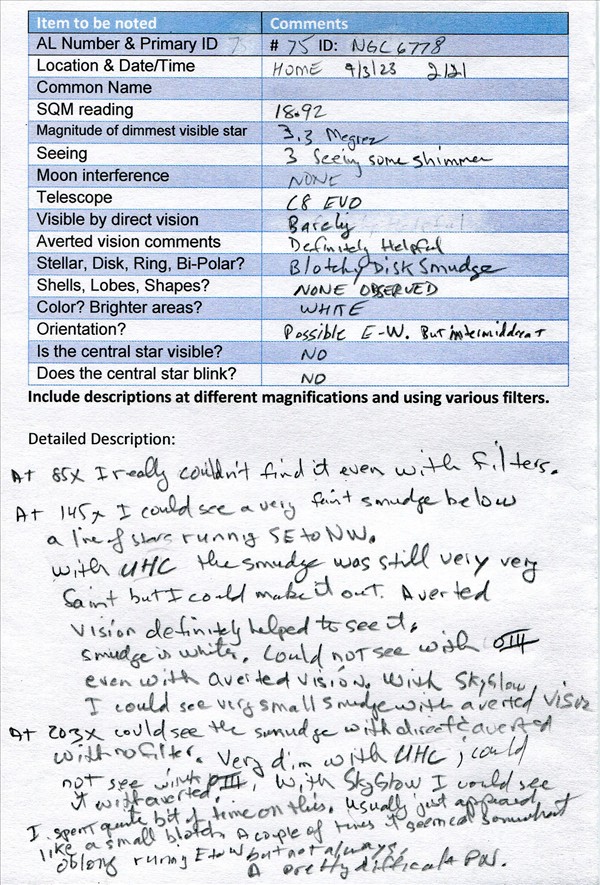 Item to be noted Comments
AL Number & Primary ID 75 # 75 ID: NGC 6778
Location & Date/Time HOME 9/3/23 2121
Common Name
SQM reading 18.92
Magnitude of dimmest visible star 3.3 Megrez
Seeing 3 Seeing some shimmer
Moon interference NONE
Telescope C8 EVO
Visible by direct vision Barely
Averted vision comments Definitely Helpful
Stellar, Disk, Ring, Bi-Polar? Blotchy Disk Smudge
Shells, Lobes, Shapes? NONE OBSERVED
Color? Brighter areas? WHITE
Orientation? Possible E-W. But intermiddent
Is the central star visible? NO
Does the central star blink? NO
Include descriptions at different magnifications and using various filters.
Detailed Description:
At 85X I really couldn't find it even with filters.
At 145x I could see a very faint smudge below
a line of stars running SE to NW.
with UHC the smudge was still very very
faint but I could make it out. Averted
vision definitely helped to see it.
smudge is white. Could not see with OIII
even with averted vision. With SkyGlow,
I could see very small smudge with averted vision
At 203X could see the smudge with direct & averted
with no filter. Very dim with UHC; could
not see with OIII. With SkyGlow I could see
it with averted.
I spent quite bit of time on this. Usually just appeared
like a small blotch. A couple of times it seemed somewhat
oblong running E to W but not always.
A pretty difficult PN.